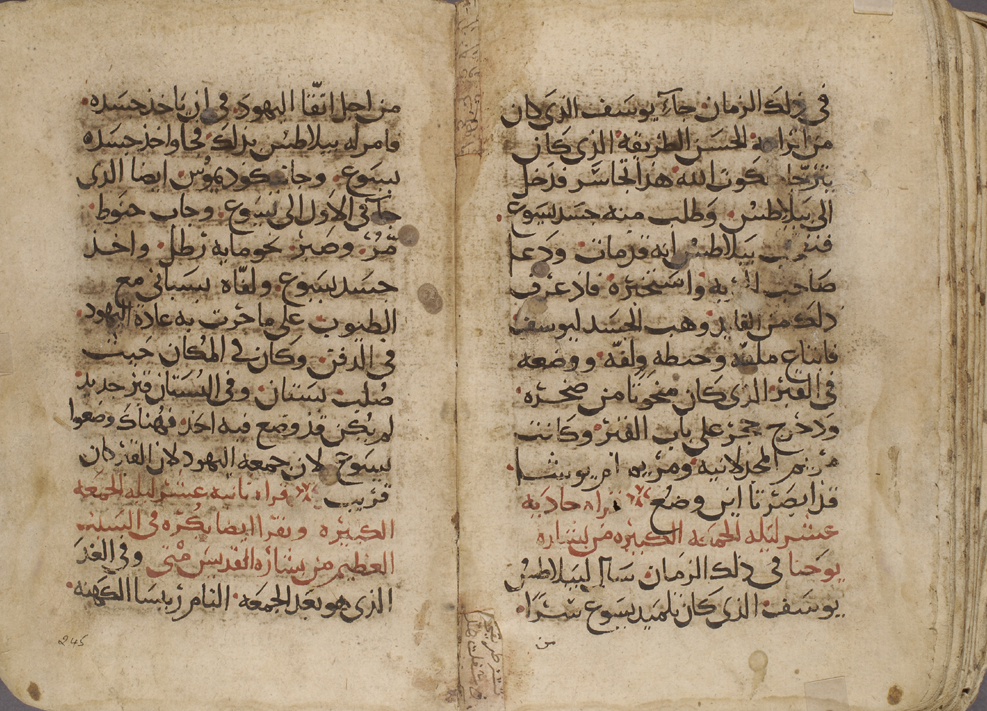 في ذلك الزمان جآء يوسف الذي كان
من الرامة الحسن الطريقة الذي كان
يترجا ملكوت الله هذا تجاسر فدخل
الى بيلاطس وطلب منه جسد يسوع
فتعجب بيلاطس انه قد مات ودعا
صاحب المايه واستخبره فاذ عرف
ذلك من القايد وهب الجسد ليوسف
فابتاع ملفه وحطه ولفه ووضعه
في القبر الذي كان منحوتا من صخره
ودحرج حجر على باب القبر وكانت
مريم المجدلانيه ومريم ام يوسا
قد ابصرتا اين وضع قراه حاديه
عشر ليله الجمعه الكبيره من بشاره
يوحنا في ذلك الزمان سال لبيلاطس
يوسف الذي كان تلميد يسوع سرا
من
من اجل اتقا اليهود في ان ياخذ جسده
فامر له بيلاطس بذلك فجا واخذ جسده
يسوع وجا نيكوديموس ايضا الذي
جآ في الاول الى يسوع وجاب حنوط
مر وصبر نحو مايه رطل واخذ
جسد يسوع ولفاه بسباني مع
الطيوب على ما جرت به عادة اليهود
في الدفن وكان في المكان حيث
صلب بستان وفي البستان قبر جديد
لم يكن قد وضع فيه احد فهناك وضعوا
يسوع لان جمعه اليهود لان القبر كان
قريب قراه تانيه عشر ليله الجمعه
الكبيره وتقرا ايضا بكره في السبت
العظيم من بشاره القديس متى وفي الغد
الذي هو بعد الجمعه التامر رييسا الكهنه
245